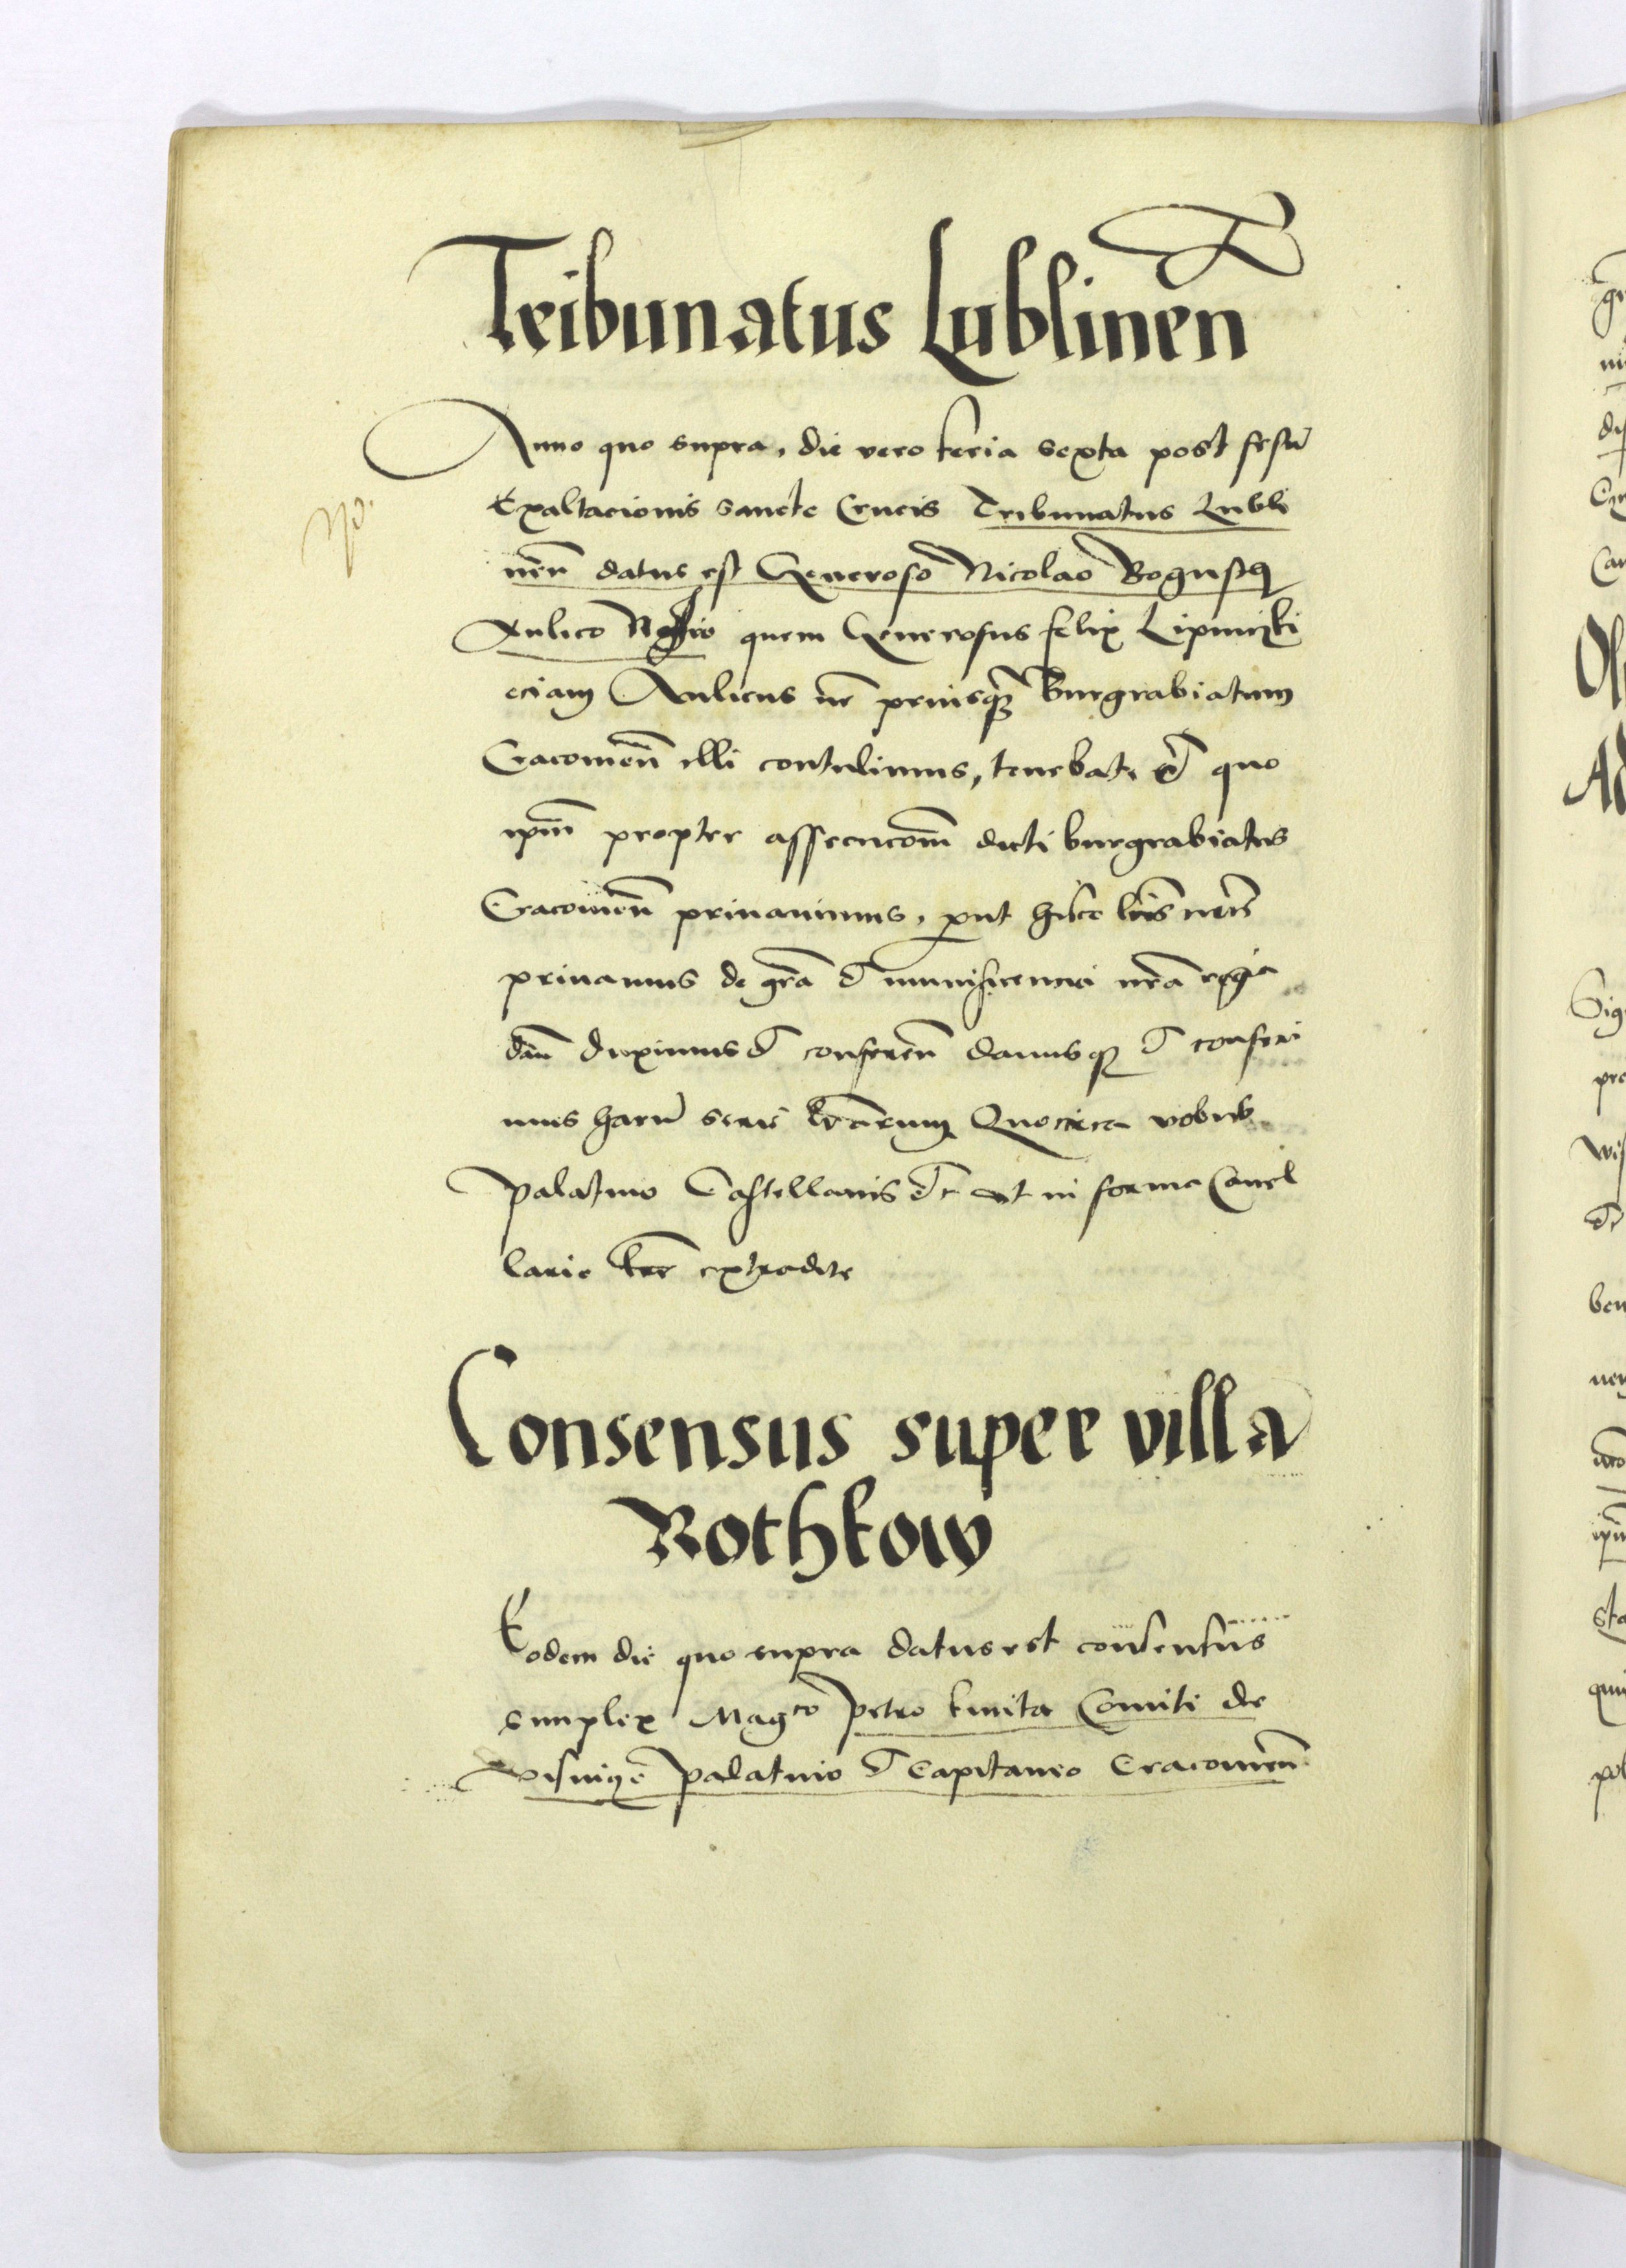 Tribunatus Lublinen̄
Anno quo supra, die vero feria sexta post festū
Exaltacionis sancte Crucis Tribunatus Lubli
nen̄ datus est Generoso Nicolao Bogusch
Aulico Nrō quem Generosus felix Lipniczki
eciam Aulicus nr̄ priusqz̄ Burgrabiatum
Cracouien̄ illi contulimus, tenebat, et quo
ipm̄ propter assecucōm dicti burgrabiatus
Cracouien̄ priuauimus, put hisce lr̄is nrīs
priuamus de grā et munificencia nrā regia
dan̄ duximus et conferen̄ damusqz et conferi
mus harū serie lrārum Quocirca vobis
palatino Castellanis etc ut in forma Cancel
larie lrē extradite
Consensus super villa
Rothkow
Eodem die quo supra datus est consensus
simplex Magco petro kmita Comiti de
visnicze palatino et Capitaneo Cracouien̄